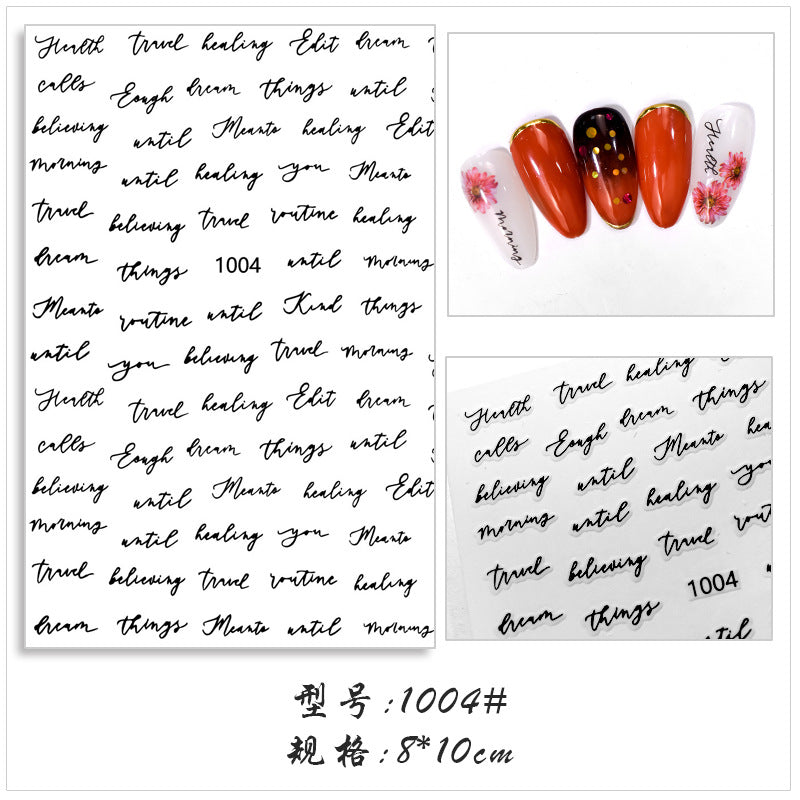 Health travel healing Edit dream
calls Eough dream things until
believing until Meanto healing Edit
morning until healing you Meanto
travel believing travel routine healing
dream things 1004 until morning
Meanto routine until Kind things
until you believing travel morning
Health travel healing Edit dream
calls Eough dream things until
believing until Meanto healing Edit
morning until healing you Meanto
travel believing travel routine healing
dream things Meanto until morning
morning
Health
Health travel healing
calls Eough dream things
believing until Meanto hea
morning until healing you
travel believing travel rout
dream things 1004
til
型号:1004#
规格:8*10cm